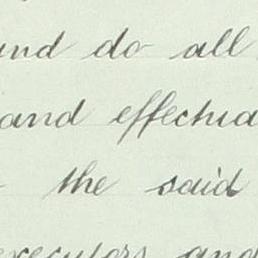 and do all
and effectua
the said
executors and